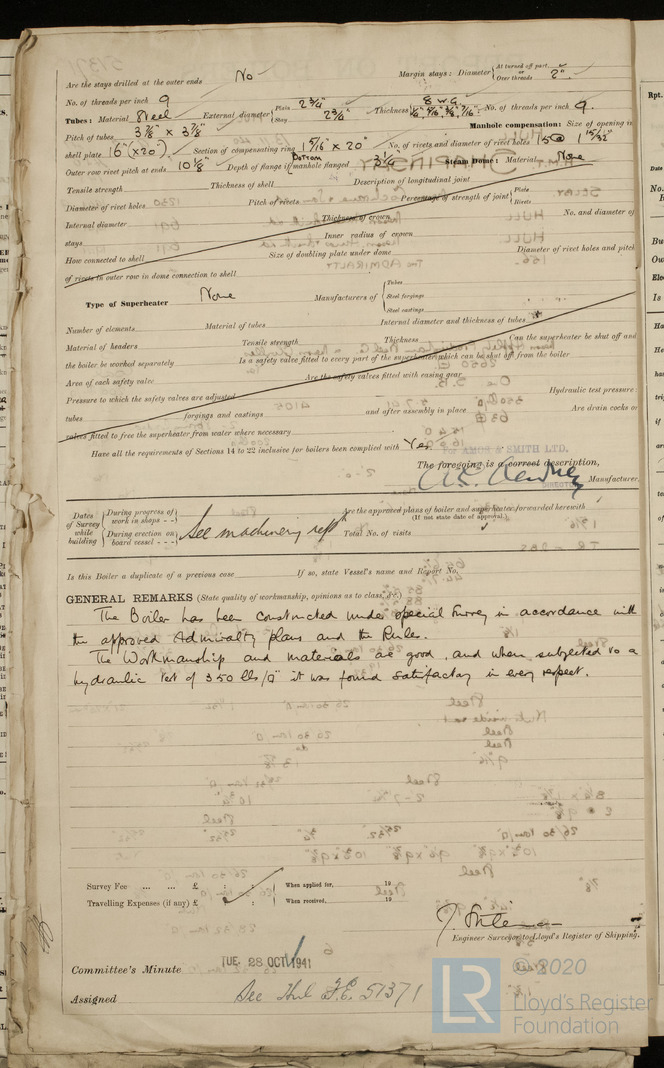 Are the stays drilled at the outer ends No Margin stays: Diameter { At turned off part or Over threads 2"
No. of threads per inch 9
Tubes: Material Steel External diameter { Plain 2 3/4" Stay 2 3/4" Thickness { 8 W.G. No. of threads per inch 9.
Pitch of tubes 3 7/8" x 3 7/8" Manhole compensation: Size of opening in
shell plate 16" (x20") Section of compensating ring 15/16" x 20" No. of rivets and diameter of rivet holes 1 15/32"
Outer row rivet pitch at ends 10 1/8" Depth of flange if manhole flanged Bottom 3 1/4" Steam Dome: Material None
Tensile strength Thickness of shell Description of longitudinal joint
Diameter of rivet holes Pitch of rivets Percentage of strength of joint { Plate Rivets
Internal diameter Thickness of crown No. and diameter of
stays Inner radius of crown
How connected to shell Size of doubling plate under dome Diameter of rivet holes and pitch
of rivets in outer row in dome connection to shell
Type of Superheater None Manufacturers of { Tubes Steel forgings Steel castings
Number of elements Material of tubes Internal diameter and thickness of tubes
Material of headers Tensile strength Thickness Can the superheater be shut off and
the boiler be worked separately Is a safety valve fitted to every part of the superheater which can be shut off from the boiler
Area of each safety valve Are the safety valves fitted with easing gear
Pressure to which the safety valves are adjusted Hydraulic test pressure:
tubes forgings and castings and after assembly in place Are drain cocks or
valves fitted to free the superheater from water where necessary
Have all the requirements of Sections 14 to 22 inclusive for boilers been complied with Yes
For AMOS & SMITH LTD.
The foregoing is a correct description,
DIRECTOR Manufacturer.
Dates of Survey while building { During progress of work in shops - - During erection on board vessel - - - } See machinery rept
Are the approved plans of boiler and superheater forwarded herewith
(If not state date of approval.)
Total No. of visits
Is this Boiler a duplicate of a previous case If so, state Vessel's name and Report No.
GENERAL REMARKS (State quality of workmanship, opinions as to class, &c.)
The Boiler has been constructed under special survey in accordance with
the approved Admiralty plans and the Rules.
The Workmanship and materials are good, and when subjected to a
hydraulic test of 350 lbs/□" it was found satisfactory in every respect.
Survey Fee ... ... £ : : When applied for, 19
Travelling Expenses (if any) £ : : When received, 19
Engineer Surveyor to Lloyd's Register of Shipping.
TUE. 28 OCT 1941
Committee's Minute
Assigned See Hul F.E. 51371
© 2020
LR
Lloyd's Register
Foundation
Rpt.
Date
No.